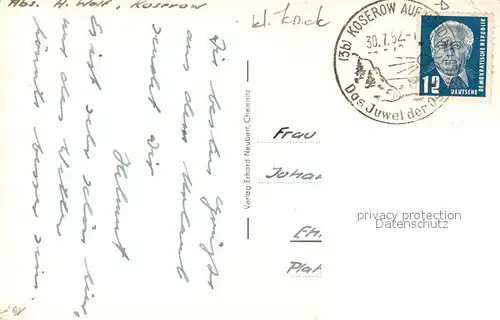 Abs. H. Wolf, Koserow
kl. Knick
Die besten Grüße
aus dem Urlaub
sendet Dir
Helmut
Es ist sehr schön hier,
nur das Wetter
könnte besser sein.
Verlag Erhard Neubert, Chemnitz
(3b) KOSEROW AUF
30.7.52
Das Juwel der Os
12
DEUTSCHE
DEMOKRATISCHE REPUBLIK
Frau
Johan
Eh.
Plat
privacy protection
Datenschutz